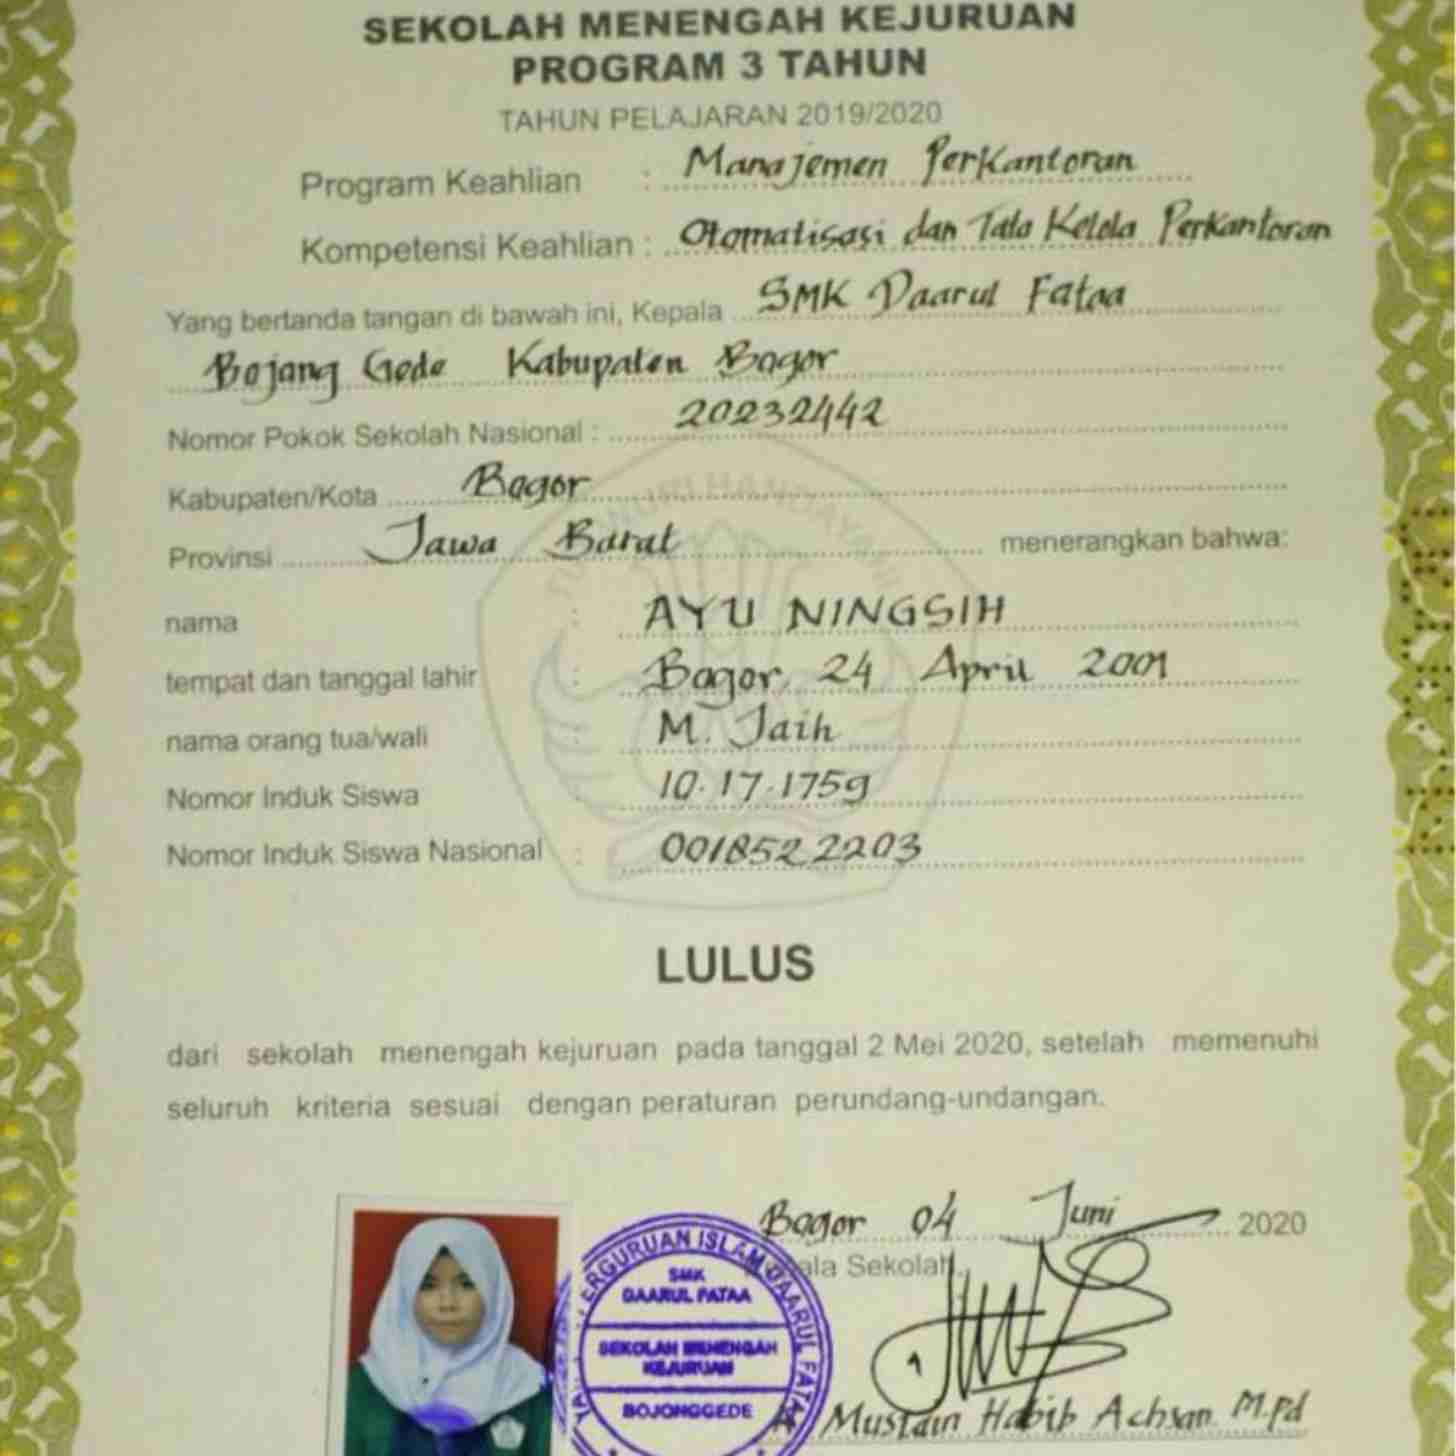 SEKOLAH MENENGAH KEJURUAN
PROGRAM 3 TAHUN
TAHUN PELAJARAN 2019/2020
Program Keahlian : Manajemen Perkantoran
Kompetensi Keahlian : Otomatisasi dan Tata Kelola Perkantoran
Yang bertanda tangan di bawah ini, Kepala SMK Daarul Fataa
Bojong Gede Kabupaten Bogor
Nomor Pokok Sekolah Nasional : 20232442
Kabupaten/Kota Bogor
Provinsi Jawa Barat menerangkan bahwa:
nama : AYU NINGSIH
tempat dan tanggal lahir : Bogor, 24 April 2001
nama orang tua/wali : M. Jaih
Nomor Induk Siswa : 10.17.1759
Nomor Induk Siswa Nasional : 0018522203
LULUS
dari sekolah menengah kejuruan pada tanggal 2 Mei 2020, setelah memenuhi
seluruh kriteria sesuai dengan peraturan perundang-undangan.
Bogor 04 Juni 2020
Kepala Sekolah,
PERGURUAN ISLAM DAARUL FATAA
SMK
DAARUL FATAA
SEKOLAH MENENGAH
KEJURUAN
BOJONGGEDE
Mustain Habib Achsan. M.Pd